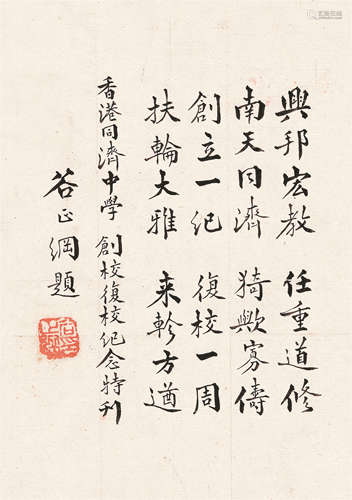 興邦宏教 任重道修
南天同濟 猗歟寡儔
創立一紀 復校一周
扶輪大雅 来軫方遒
香港同濟中學 創校復校紀念特刊
谷正綱題